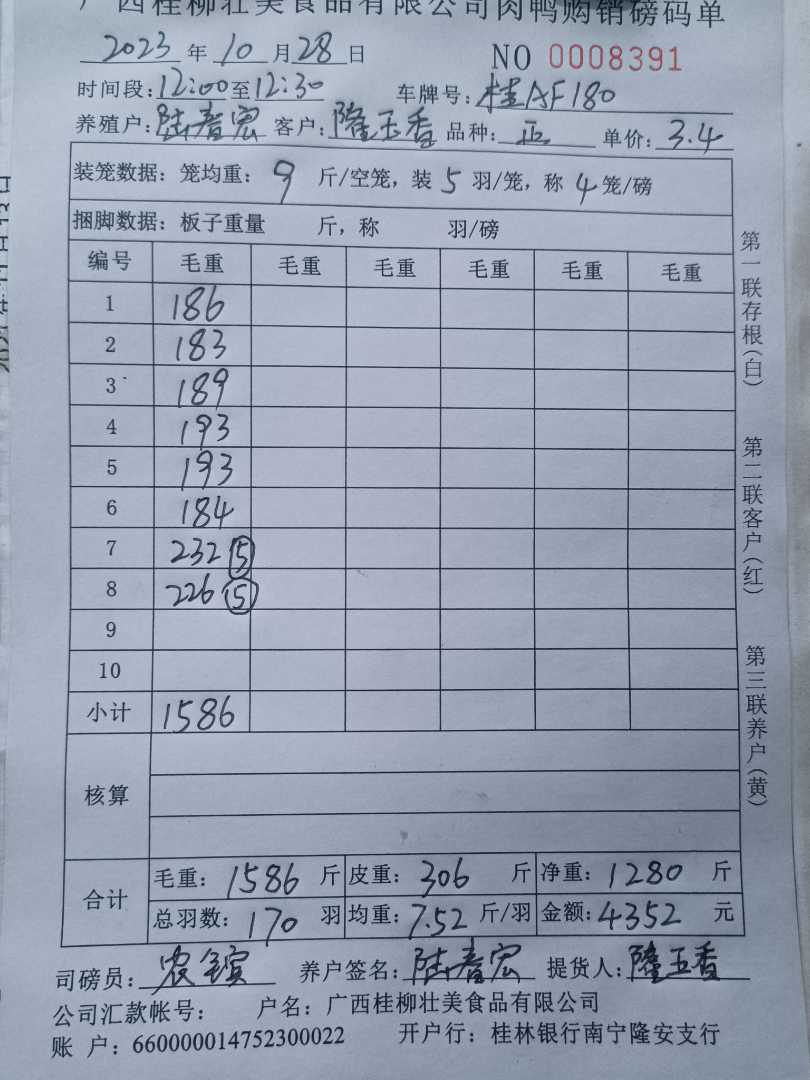 广西桂柳壮美食品有限公司肉鸭购销磅码单
2023 年 10 月 28 日 NO 0008391
时间段:12:00至12:30 车牌号:桂AF180
养殖户:陆春宏 客户:隆玉香 品种:正 单价:3.4
装笼数据:笼均重:9 斤/空笼,装 5 羽/笼,称 4 笼/磅
捆脚数据:板子重量 斤,称 羽/磅
编号 毛重 毛重 毛重 毛重 毛重 毛重
1 186
2 183
3 189
4 193
5 193
6 184
7 232 ⑤
8 226 ⑤
9
10
小计 1586
核算
合计
毛重:1586 斤 皮重:306 斤 净重:1280 斤
总羽数:170 羽 均重:7.52 斤/羽 金额:4352 元
司磅员:农 养户签名:陆春宏 提货人:隆玉香
公司汇款帐号: 户名:广西桂柳壮美食品有限公司
账 户:660000014752300022 开户行:桂林银行南宁隆安支行
第一联存根(白)
第二联客户(红)
第三联养户(黄)